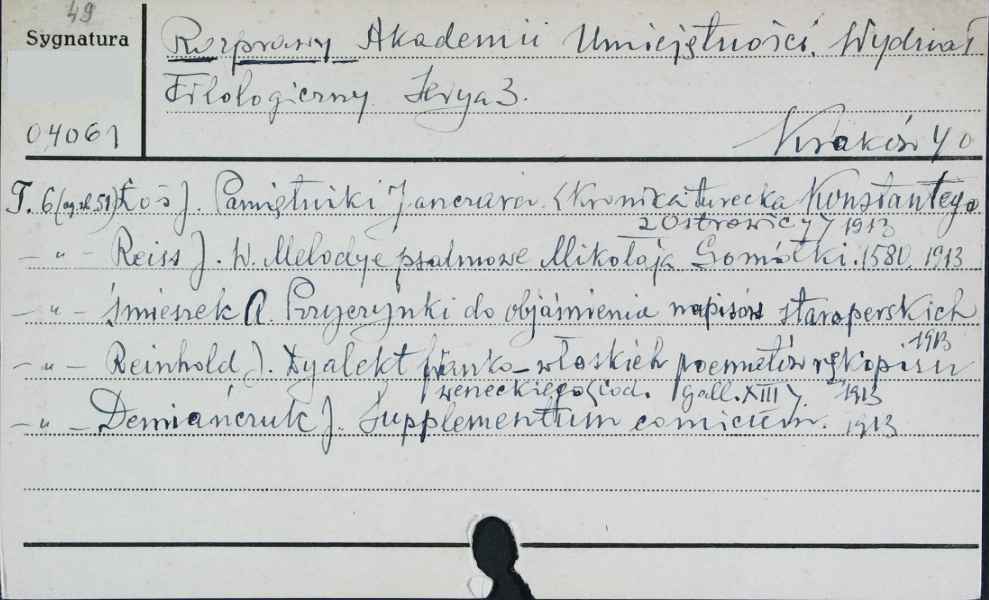 49
Sygnatura
04061
Rozprawy Akademii Umiejętności. Wydział
Filologiczny. Serya 3.
Kraków 40
T. 6 (og. zb. 51) Łoś J. Pamiętniki Janczara (Kronika turecka Konstantego
z Ostrowicy) 1913
— „ — Reiss J. W. Melodye psalmowe Mikołaja Gomółki. 1580. 1913
— „ — Śmieszek A. Przyczynki do objaśnienia napisów staroperskich
1913
— „ — Reinhold J. Dyalekt franko-włoskich poematów rękopisu
weneckiego (cod. gall. XIII). 1913
— „ — Demiańczuk J. Supplementum comicum. 1913